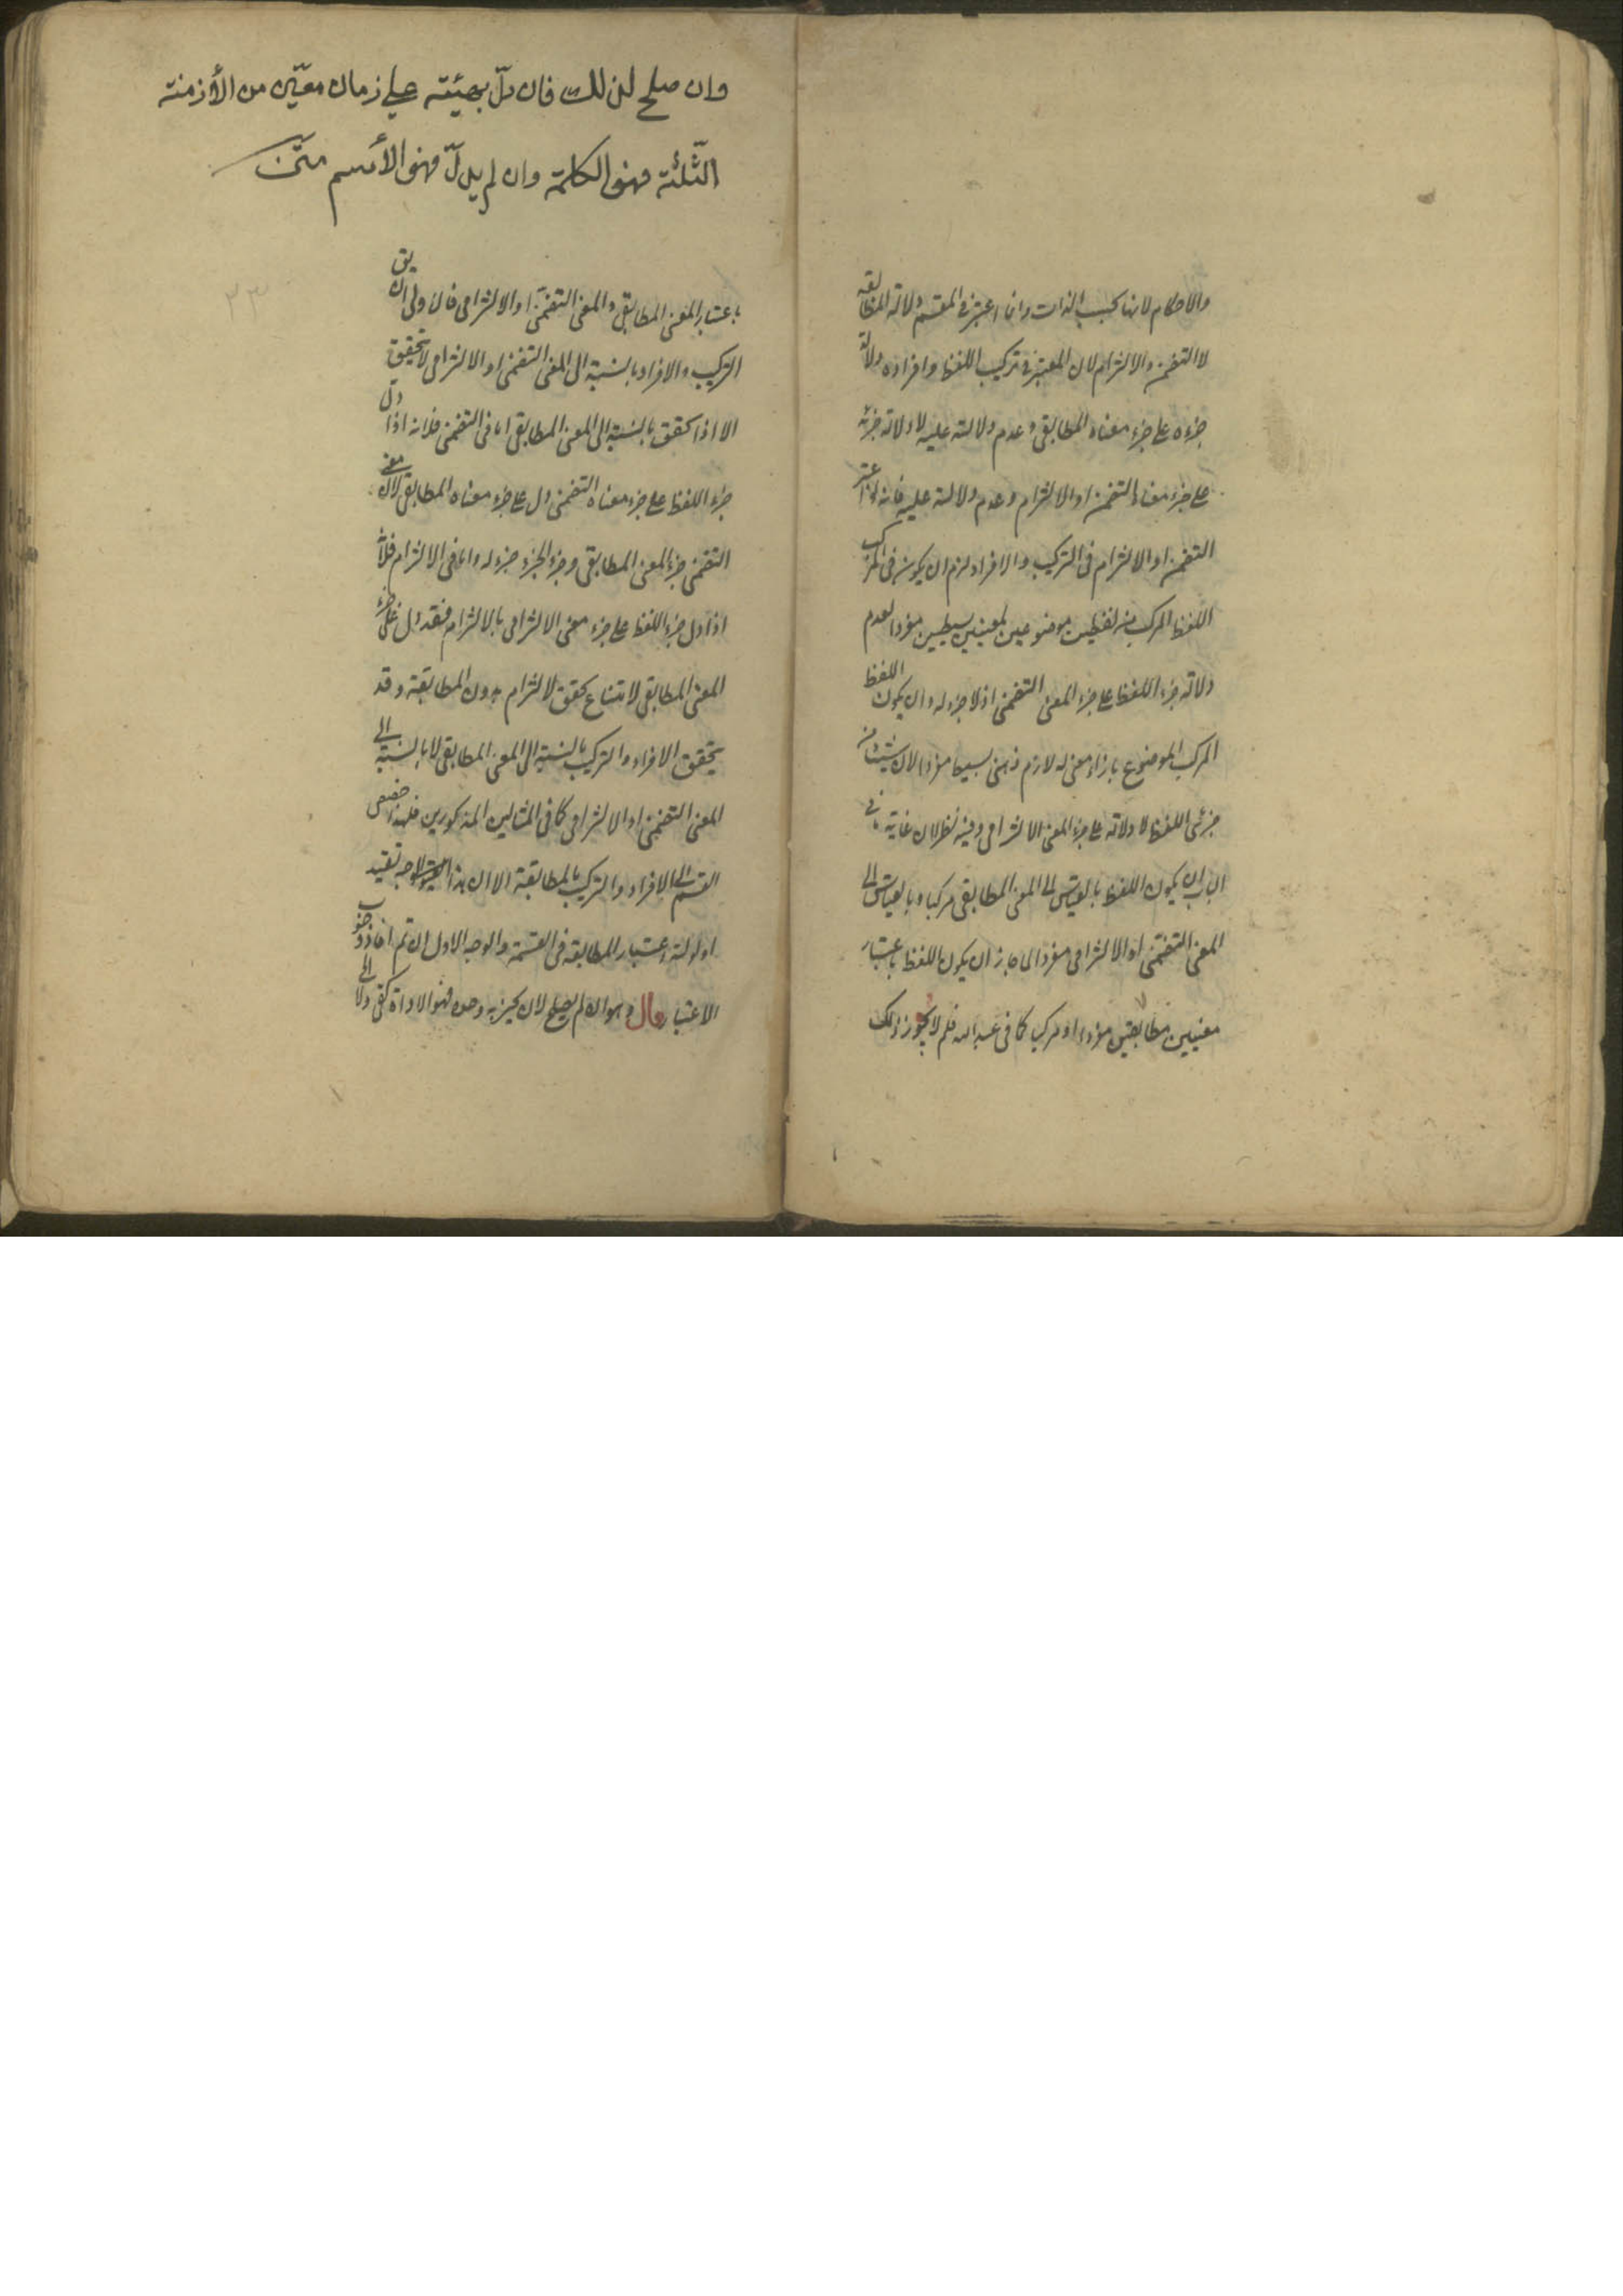 والاحكام لانها بحسب الذات وانما اعتبر فى المقسم دلالة المطابقة
لا التضمن والالتزام لان المعتبر فى تركيب اللفظ وافراده دلالة
جزءه على جزء معناه المطابقى وعدم دلالته عليه لا دلالة جزئه
على جزء معناه التضمن او الالتزام وعدم دلالته عليه فانه لو اعتبر
التضمن او الالتزام فى التركيب والافراد لزم ان يكون فى المركب
اللفظ المركب من لفظين موضوعين لمعنيين بسيطين مفردا لعدم
دلالة جزء اللفظ على جزء المعنى التضمنى اذ لا جزء له وان يكون اللفظ
المركب الموضوع بازاء معنى له لازم ذهنى بسيط مفردا لان شيئا من
جزئى اللفظ لا دلالة على جزء المعنى الالتزامى وفيه نظر لان غاية ما فى
الباب ان يكون اللفظ بالقياس الى المعنى المطابقى مركبا وبالقياس الى
المعنى التضمنى او الالتزامى مفردا لما جاز ان يكون اللفظ باعتبار
معنيين مطابقيين مفردا او مركبا كما فى عبد الله فلم لا يجوز ذلك
وان صلح لذلك فان دلّ بهيئته على زمان معيّن من الأزمنة
الثّلثة فهو الكلمة وان لم يدلّ فهو الأسم متن
٣٣
باعتبار المعنى المطابقى والمعنى التضمنى او الالتزامى فالاولى ان يق
التركيب والافراد بالنسبة الى المعنى التضمنى او الالتزامى لا يتحقق
الا اذا تحقق بالنسبة الى المعنى المطابقى اما فى التضمنى فلانه اذا دل
جزء اللفظ على جزء معناه التضمنى دل على جزء معناه المطابقى لان معنى
التضمنى جزء المعنى المطابقى وجزء الجزء جزء له واما فى الالتزام فلانه
اذا دل جزء اللفظ على جزء معنى الالتزامى بالالتزام فقد دل على جزء
المعنى المطابقى لامتناع تحقق الالتزام بدون المطابقة وقد
يتحقق الافراد والتركيب بالنسبة الى المعنى المطابقى لا بالنسبة الى
المعنى التضمنى او الالتزامى كما فى المثالين المذكورين فلهذا خصص
القسم الى الافراد والتركيب بالمطابقة الا ان هذا الوجه يفيد
اولوية اعتبار المطابقة فى القسمة والوجه الاول ان تم افاد وجوب
الاعتبار قال وهو ان لم يصلح لان يخبر به وحده فهو الاداة كفى ولا